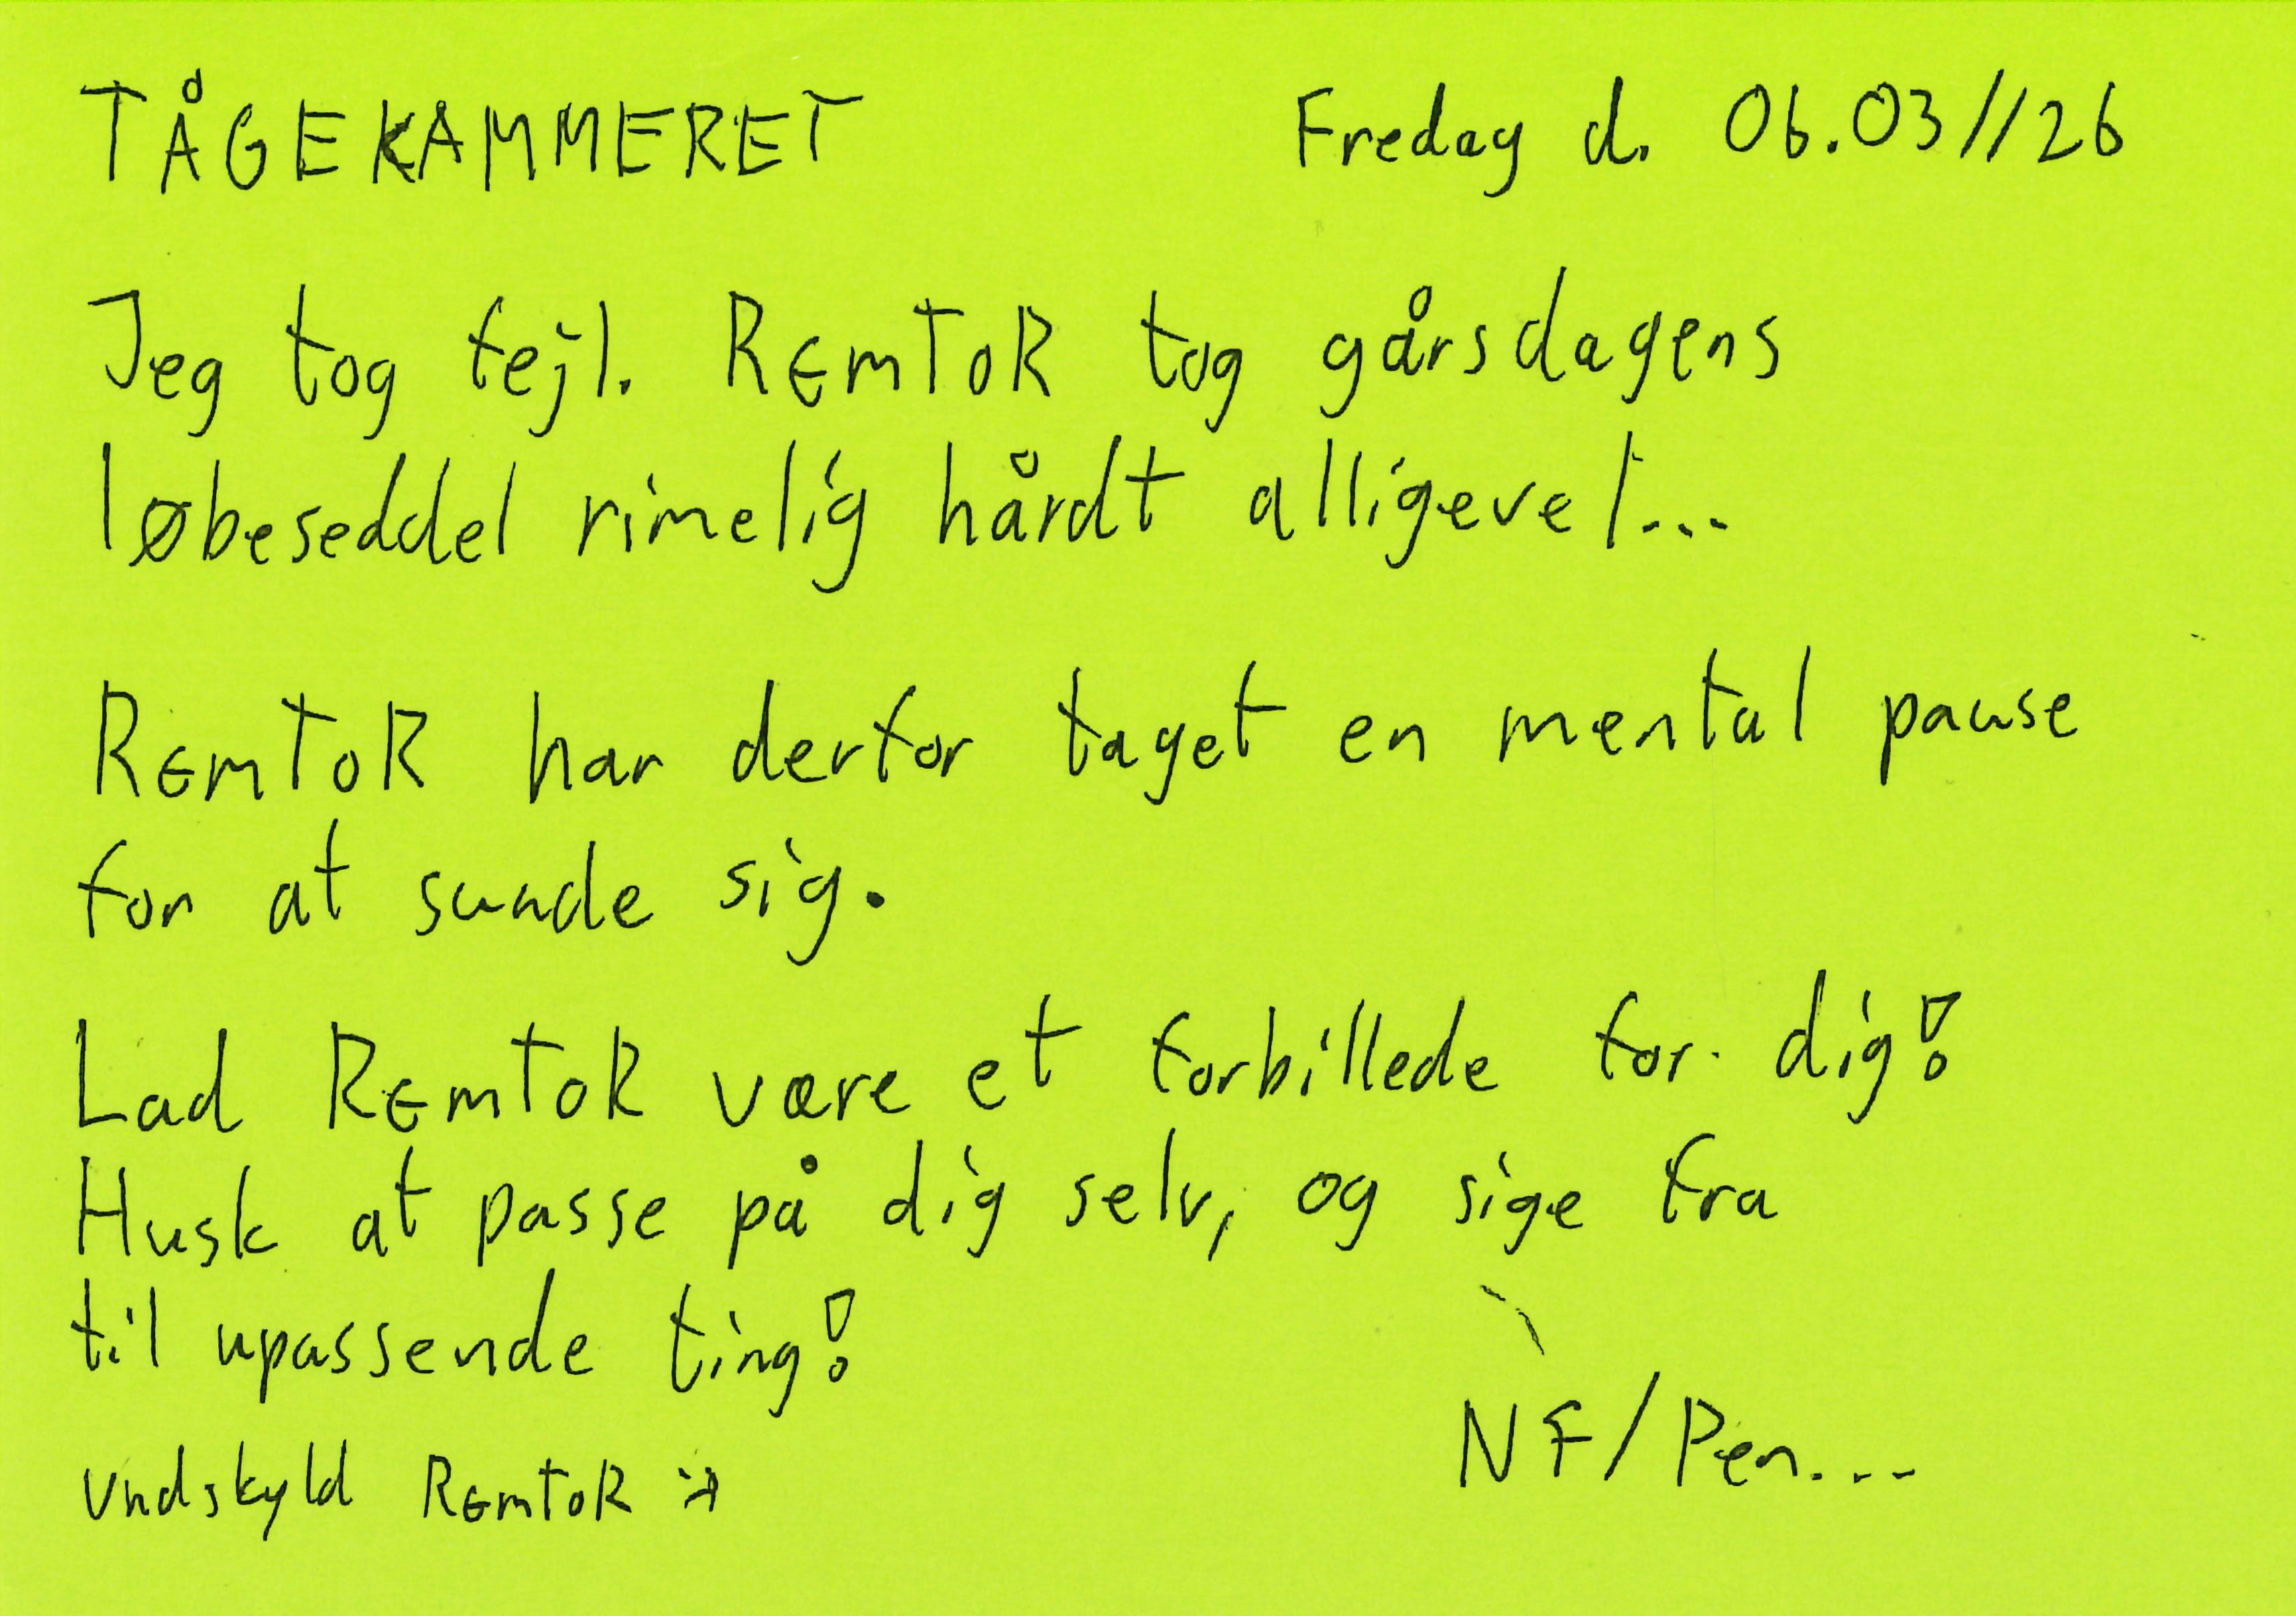 TÅGEKAMMERET Fredag d. 06.03//26
Jeg tog fejl. REmToR tog gårsdagens
løbeseddel rimelig hårdt alligevel...
REmToR har derfor taget en mental pause
for at sunde sig.
Lad REmToR være et forbillede for dig!
Husk at passe på dig selv, og sige fra
til upassende ting!
NF/Pen...
Undskyld REmToR :)